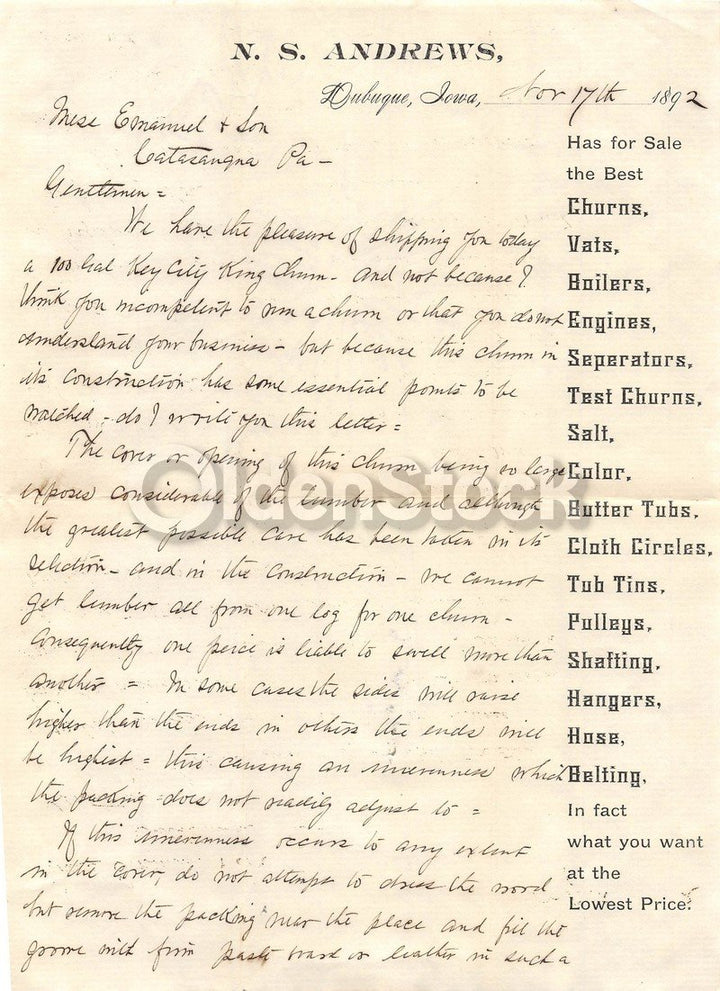 N. S. ANDREWS,
Dubuque, Iowa, Nov 17th 1892
Mess Emanuel & Son
Catasauqua Pa -
Gentlemen =
We have the pleasure of shipping you today
a 100 Gal Key City King Churn - and not because I
think you incompetent to run a churn or that you do not
understand your business - but because this churn in
its construction has some essential points to be
watched - do I write you this letter =
The cover or opening of this churn being so large
exposes considerable of the lumber and although
the greatest possible care has been taken in its
selection - and in the construction - we cannot
get lumber all from one log for one churn -
Consequently one peice is liable to swell more than
another = In some cases the sides will raise
higher than the ends in others the ends will
be highest = this causing an unevenness which
the packing does not readily adjust to =
If this unevenness occurs to any extent
in the cover, do not attempt to dress the wood
but remove the packing near the place and fill the
groove with firm paste board or leather in such a
Has for Sale
the Best
Churns,
Vats,
Boilers,
Engines,
Seperators,
Test Churns,
Salt,
Color,
Butter Tubs,
Cloth Circles,
Tub Tins,
Pulleys,
Shafting,
Hangers,
Hose,
Belting,
In fact
what you want
at the
Lowest Price.
OldenStock